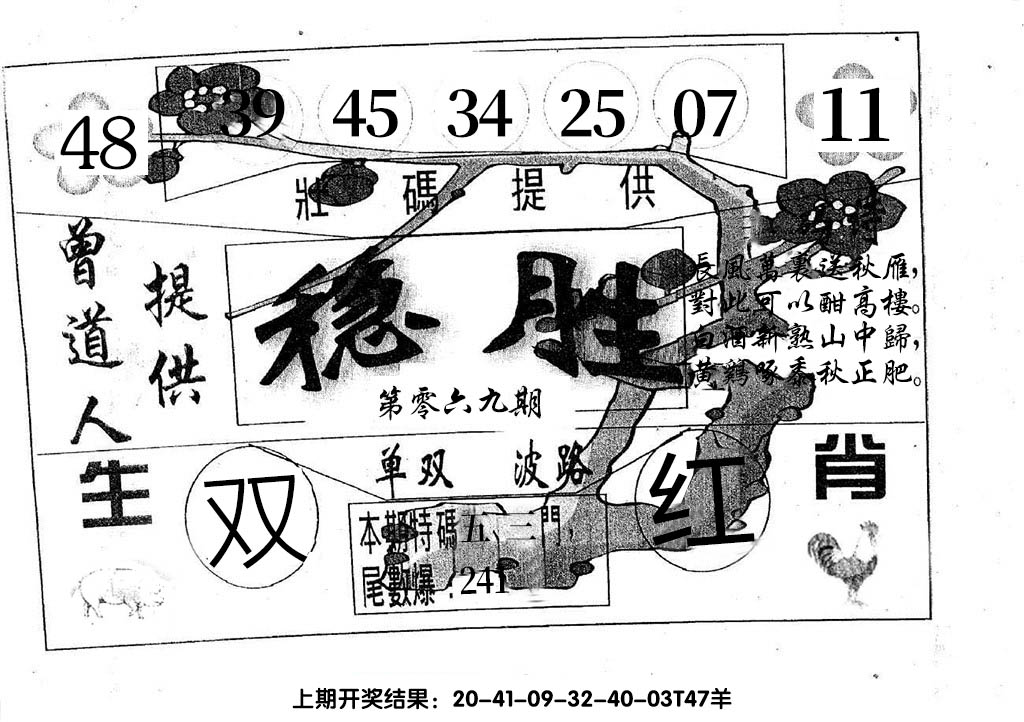 48 39 45 34 25 07 11
壯碼提供
特
曾道人
提供
稳胜
第零六九期
長風萬裏送秋雁，
對此可以酣高樓。
白酒新熟山中歸，
黃鷄啄黍秋正肥。
单双 波路
生 双 红 肖
本期特碼五、三門，
尾數爆：241
上期开奖结果：20-41-09-32-40-03T47羊